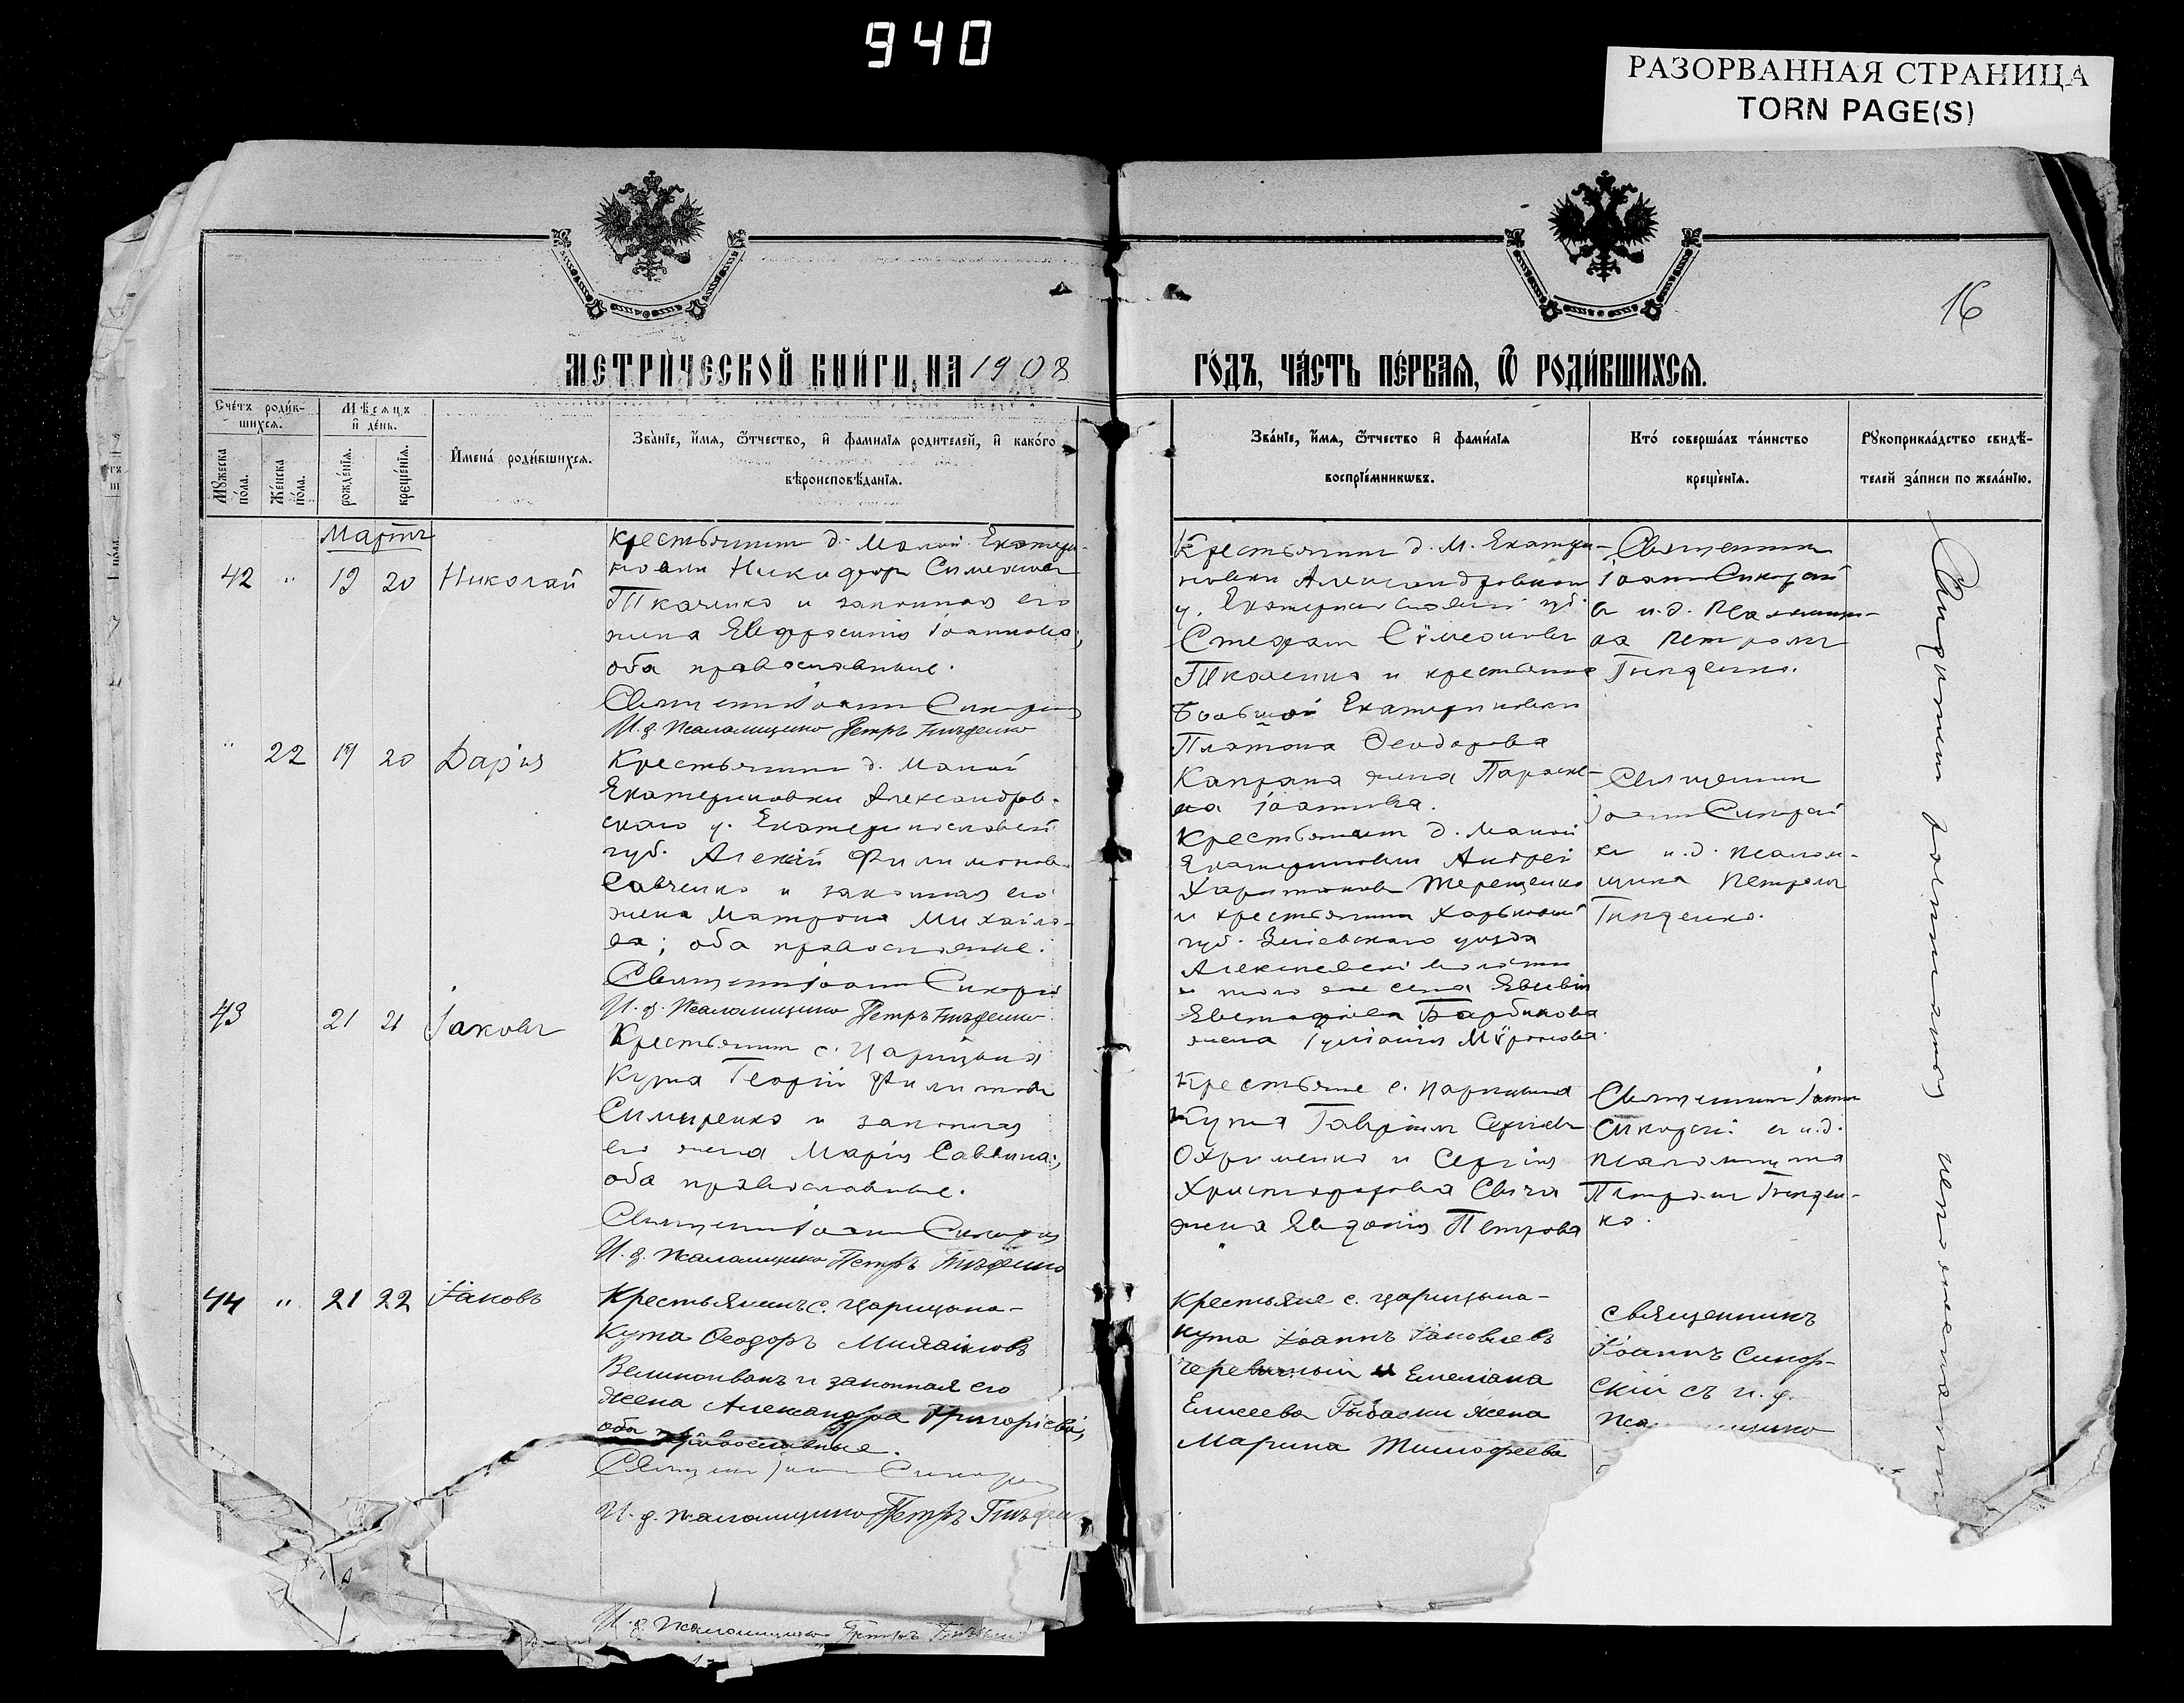 940
РАЗОРВАННАЯ СТРАНИЦА
TORN PAGE(S)
16
МЕТРИ́ЧЕСКОЙ КНИ́ГИ, НА 1908
ГО́ДЪ, ЧА́СТЬ ПЕ́РВАЯ, Ѿ РОДИ́ВШИХСЯ.
Счётъ роди́в-
шихся.
Мѣсяцъ
и҆ де́нь.
Мꙋжеска по́ла.
Же́нска по́ла.
рожде́нїя.
креще́нїя.
И҆мена́ роди́вшихся.
Зва́нїе, и҆́мя, ѻ҆́тчество, и҆ фами́лїя родителей, и҆ како́го
вѣроисповѣ́данїя.
Зва́нїе, и҆́мя, ѻ҆́тчество и҆ фами́лїя
воспрїе́мникѡвъ.
Кто́ соверша́лъ та́инство
креще́нїя.
Рꙋкоприкла́дство свидѣ́-
телей за́писи по жела́нїю.
Мартъ
42 " 19 20 Николай
Крестьянинъ д. Малой Екатери-
новки Никифоръ Симеоновъ
Ткаченко и законная его
жена Евфросинія Іоаннова;
оба православные.
Священникъ Іоаннъ Сикорскій
И. д. псаломщика Петръ Гнѣденко
Крестьянинъ д. М. Екатери-
новки Александровскаго
у. Екатеринославской губ.
Стефанъ Сѵмеоновъ
Ткаченко и крестьянина
Большой Екатериновки
Платона Ѳеодорова
Капрана жена Параске-
ва Іоаннова.
Священникъ
Іоаннъ Сикорскій
съ и. д. псаломщи-
ка Петромъ
Гнѣденко.
" 22 19 20 Дарія
Крестьянинъ д. Малой
Екатериновки Александров-
скаго у. Екатеринославской
губ. Алексій Филимонов
Савченко и законная его
жена Матрона Михаило-
ва; оба православные.
Священникъ Іоаннъ Сикорскій
И. д. псаломщика Петръ Гнѣденко
Крестьянинъ д. Малой
Екатериновки Андрей
Харитоновъ Терещенко
и крестьянина Харьковской
губ. Зміевскаго уѣзда
Алексѣевской волости
и того же села
Евстафіева Барбикова
жена Іуліанія Мѵронова.
Священникъ
Іоаннъ Сикорскій
съ и. д. псалом-
щика Петромъ
Гнѣденко.
43 21 21 Іаковъ
Крестьянинъ с. Царицына
Кута Георгій Филиповъ
Симиренко и законная
его жена Марія Саввина;
оба православные.
Священникъ Іоаннъ Сикорскій
И. д. псаломщика Петръ Гнѣденко
Крестьяне с. Царицына
Кута Гавріилъ Сергіевъ
Охрименко и Сергія
Христофорова Свича
жена Евдокія Петрова
Священникъ Іоаннъ
Сикорскій съ и. д.
псаломщика
Петромъ Гнѣден-
ко.
44 " 21 22 Іаковъ
Крестьянинъ с. Царицына-
Кута Ѳеодоръ Михаиловъ
Великоиванъ и законная его
жена Александра Григоріева,
оба православные.
Священникъ Іоаннъ Сикорскій
И. д. псаломщика Петръ Гнѣденко
Крестьяне с. Царицына-
Кута Іоаннъ Іаковлевъ
Черевичный и Емеліана
Елисеева Рыбалки жена
Марина Тимофеева
Священникъ
Іоаннъ Сикор-
скій съ и. д.
И. д. псаломщика Петръ Гнѣденко